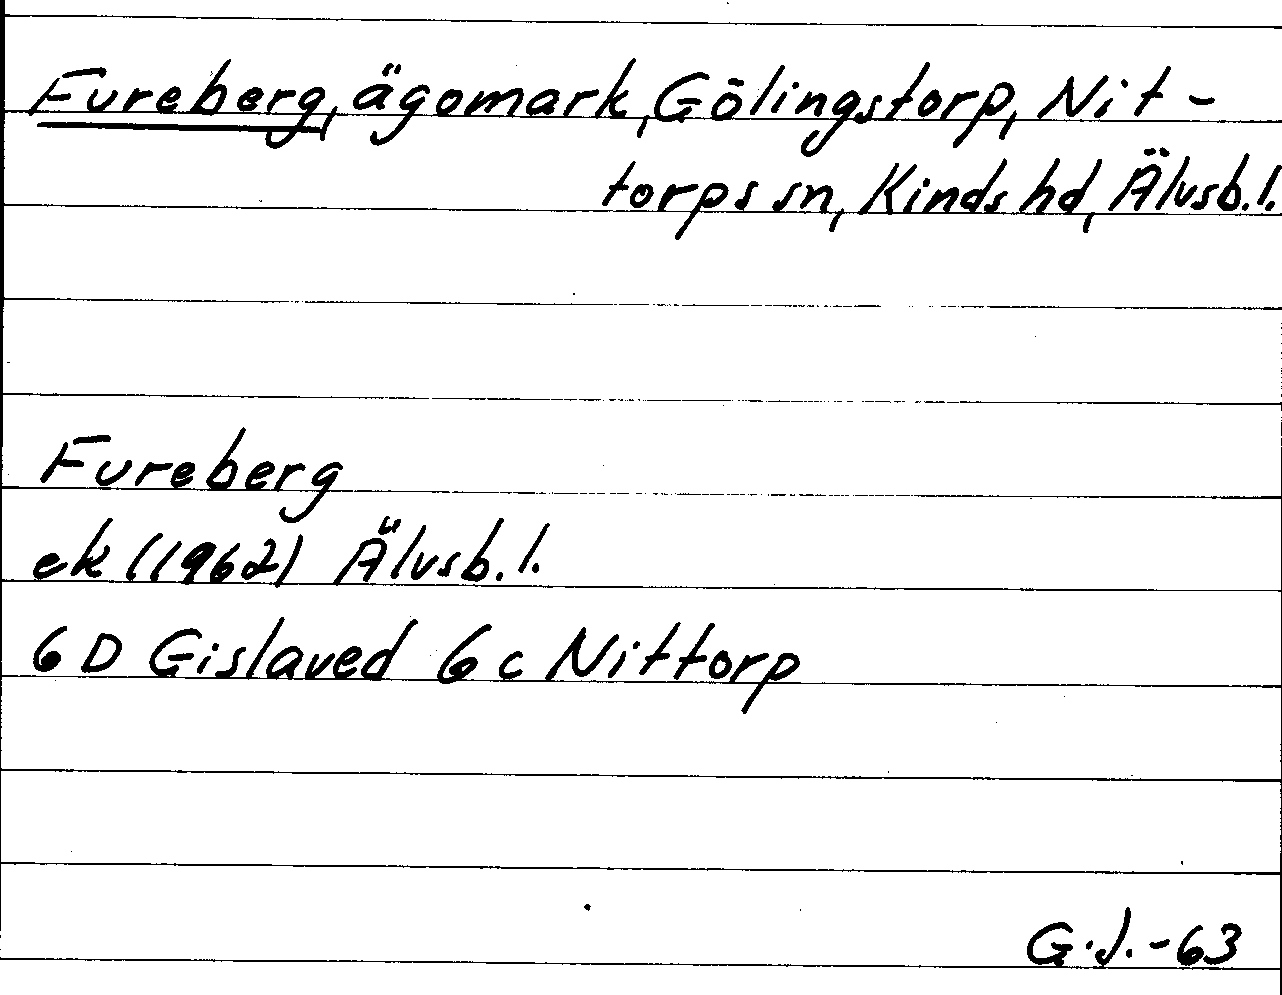 Fureberg, ägomark, Gölingstorp, Nit-
torps sn, Kinds hd, Älvsb. l.
Fureberg
ek (1962) Älvsb. l.
6 D Gislaved 6 c Nittorp
G.J.-63